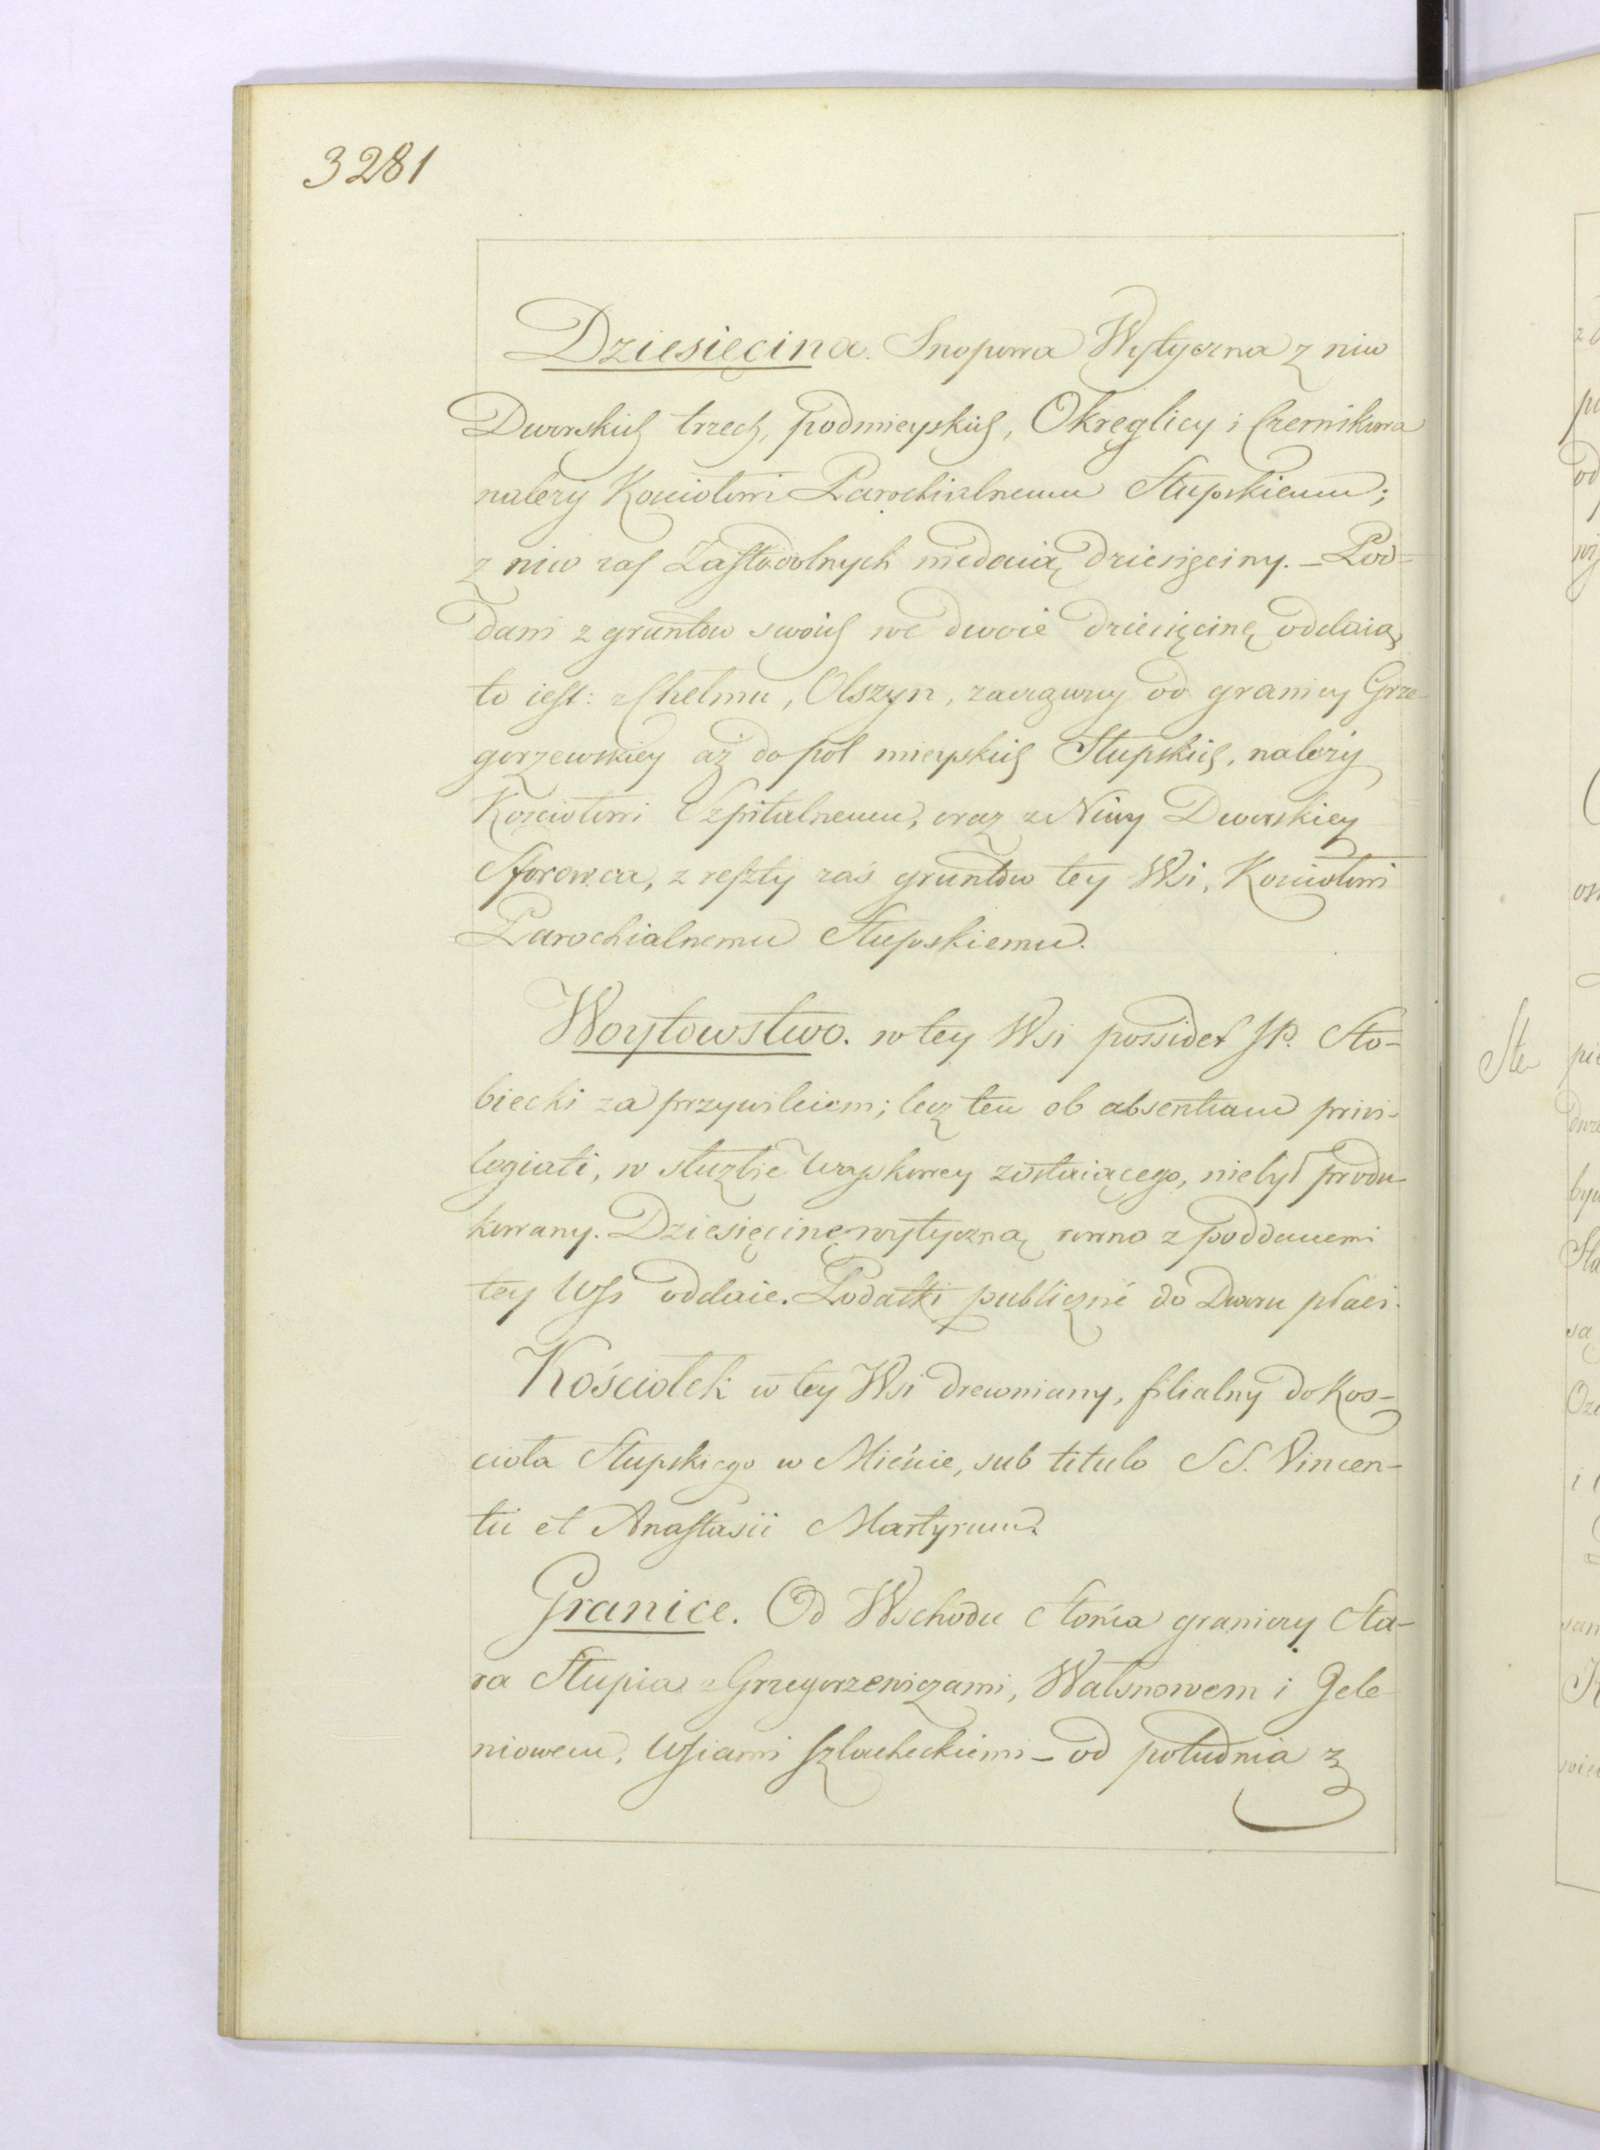 3281
Dziesięcina. Snopowa Wytyczna z niw
Dworskich trzech, podmieyskich, Okreglicy i Czernikowa
nalezy Kościołowi Parochialnemu Słupskiemu;
z niw zaś Zastodolnych niedaią dziesięciny. – Pod-
dani z gruntow swoich we dwoie dziesięcinę oddaią,
to iest: z Chełmu, Olszyn, zacząwszy od granicy Grze-
gorzewskiey aż do pol mieyskich Słupskich, należy
Kościołowi Szpitalnemu, oraz z Niwy Dworskiey
z reszty zaś gruntów tey Wsi, Kościołowi
Parochialnemu Słupskiemu.
Woytowstwo. w tey Wsi possidet JP. Sto-
biecki za przywileiem; lecz ten ob absentiam privi-
legiati, w służbie woyskowey zostaiącego, niebył produ-
kowany. Dziesięcinę wytyczną rowno z poddanemi
tey Wsi oddaie. Podatki publiczne do Dworu płaci.
Kościołek w tey Wsi drewniany, filialny do Kos-
cioła Słupskiego w Mieście, sub titulo SS. Vincen-
tii et Anastasii Martyrum.
Granice. Od Wschodu Słońca graniczy Sta-
ra Słupia z Grzegorzewiczami, Wałsnowem i Jele-
niowem, Wsiami szlacheckiemi – od południa z